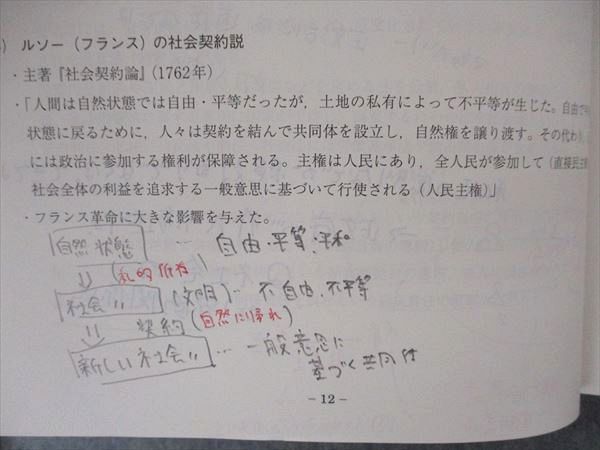 ) ルソー（フランス）の社会契約説
・主著『社会契約論』(1762年)
・「人間は自然状態では自由・平等だったが，土地の私有によって不平等が生じた。自由で
状態に戻るために，人々は契約を結んで共同体を設立し，自然権を譲り渡す。その代わ
には政治に参加する権利が保障される。主権は人民にあり，全人民が参加して（直接民主
社会全体の利益を追求する一般意思に基づいて行使される（人民主権）」
・フランス革命に大きな影響を与えた。
自然状態 … 自由・平等・平和
⇓ (私的所有)
社会〃 (文明)… 不自由、不平等
⇓ 契約 (自然に帰れ)
新しい社会〃 … 一般意思に
基づく共同体
－12－